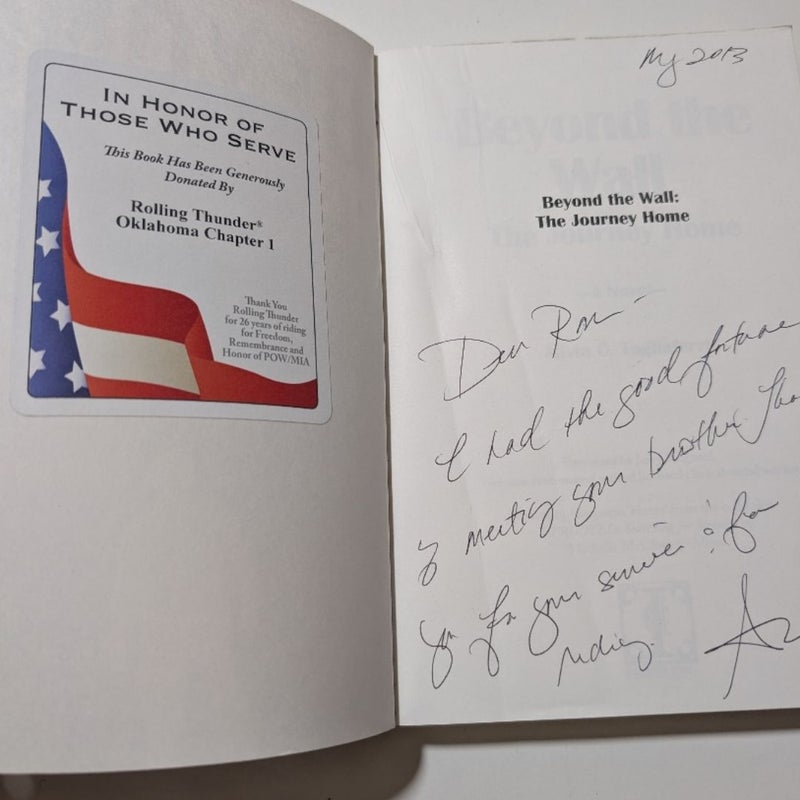 IN HONOR OF
THOSE WHO SERVE
This Book Has Been Generously
Donated By
Rolling Thunder®
Oklahoma Chapter 1
Thank You
Rolling Thunder
for 26 years of riding
for Freedom,
Remembrance and
Honor of POW/MIA
2013
Beyond the Wall:
The Journey Home
Dear Ron -
I had the good fortune
of meeting your brother. Tha
you for your service & for
riding.